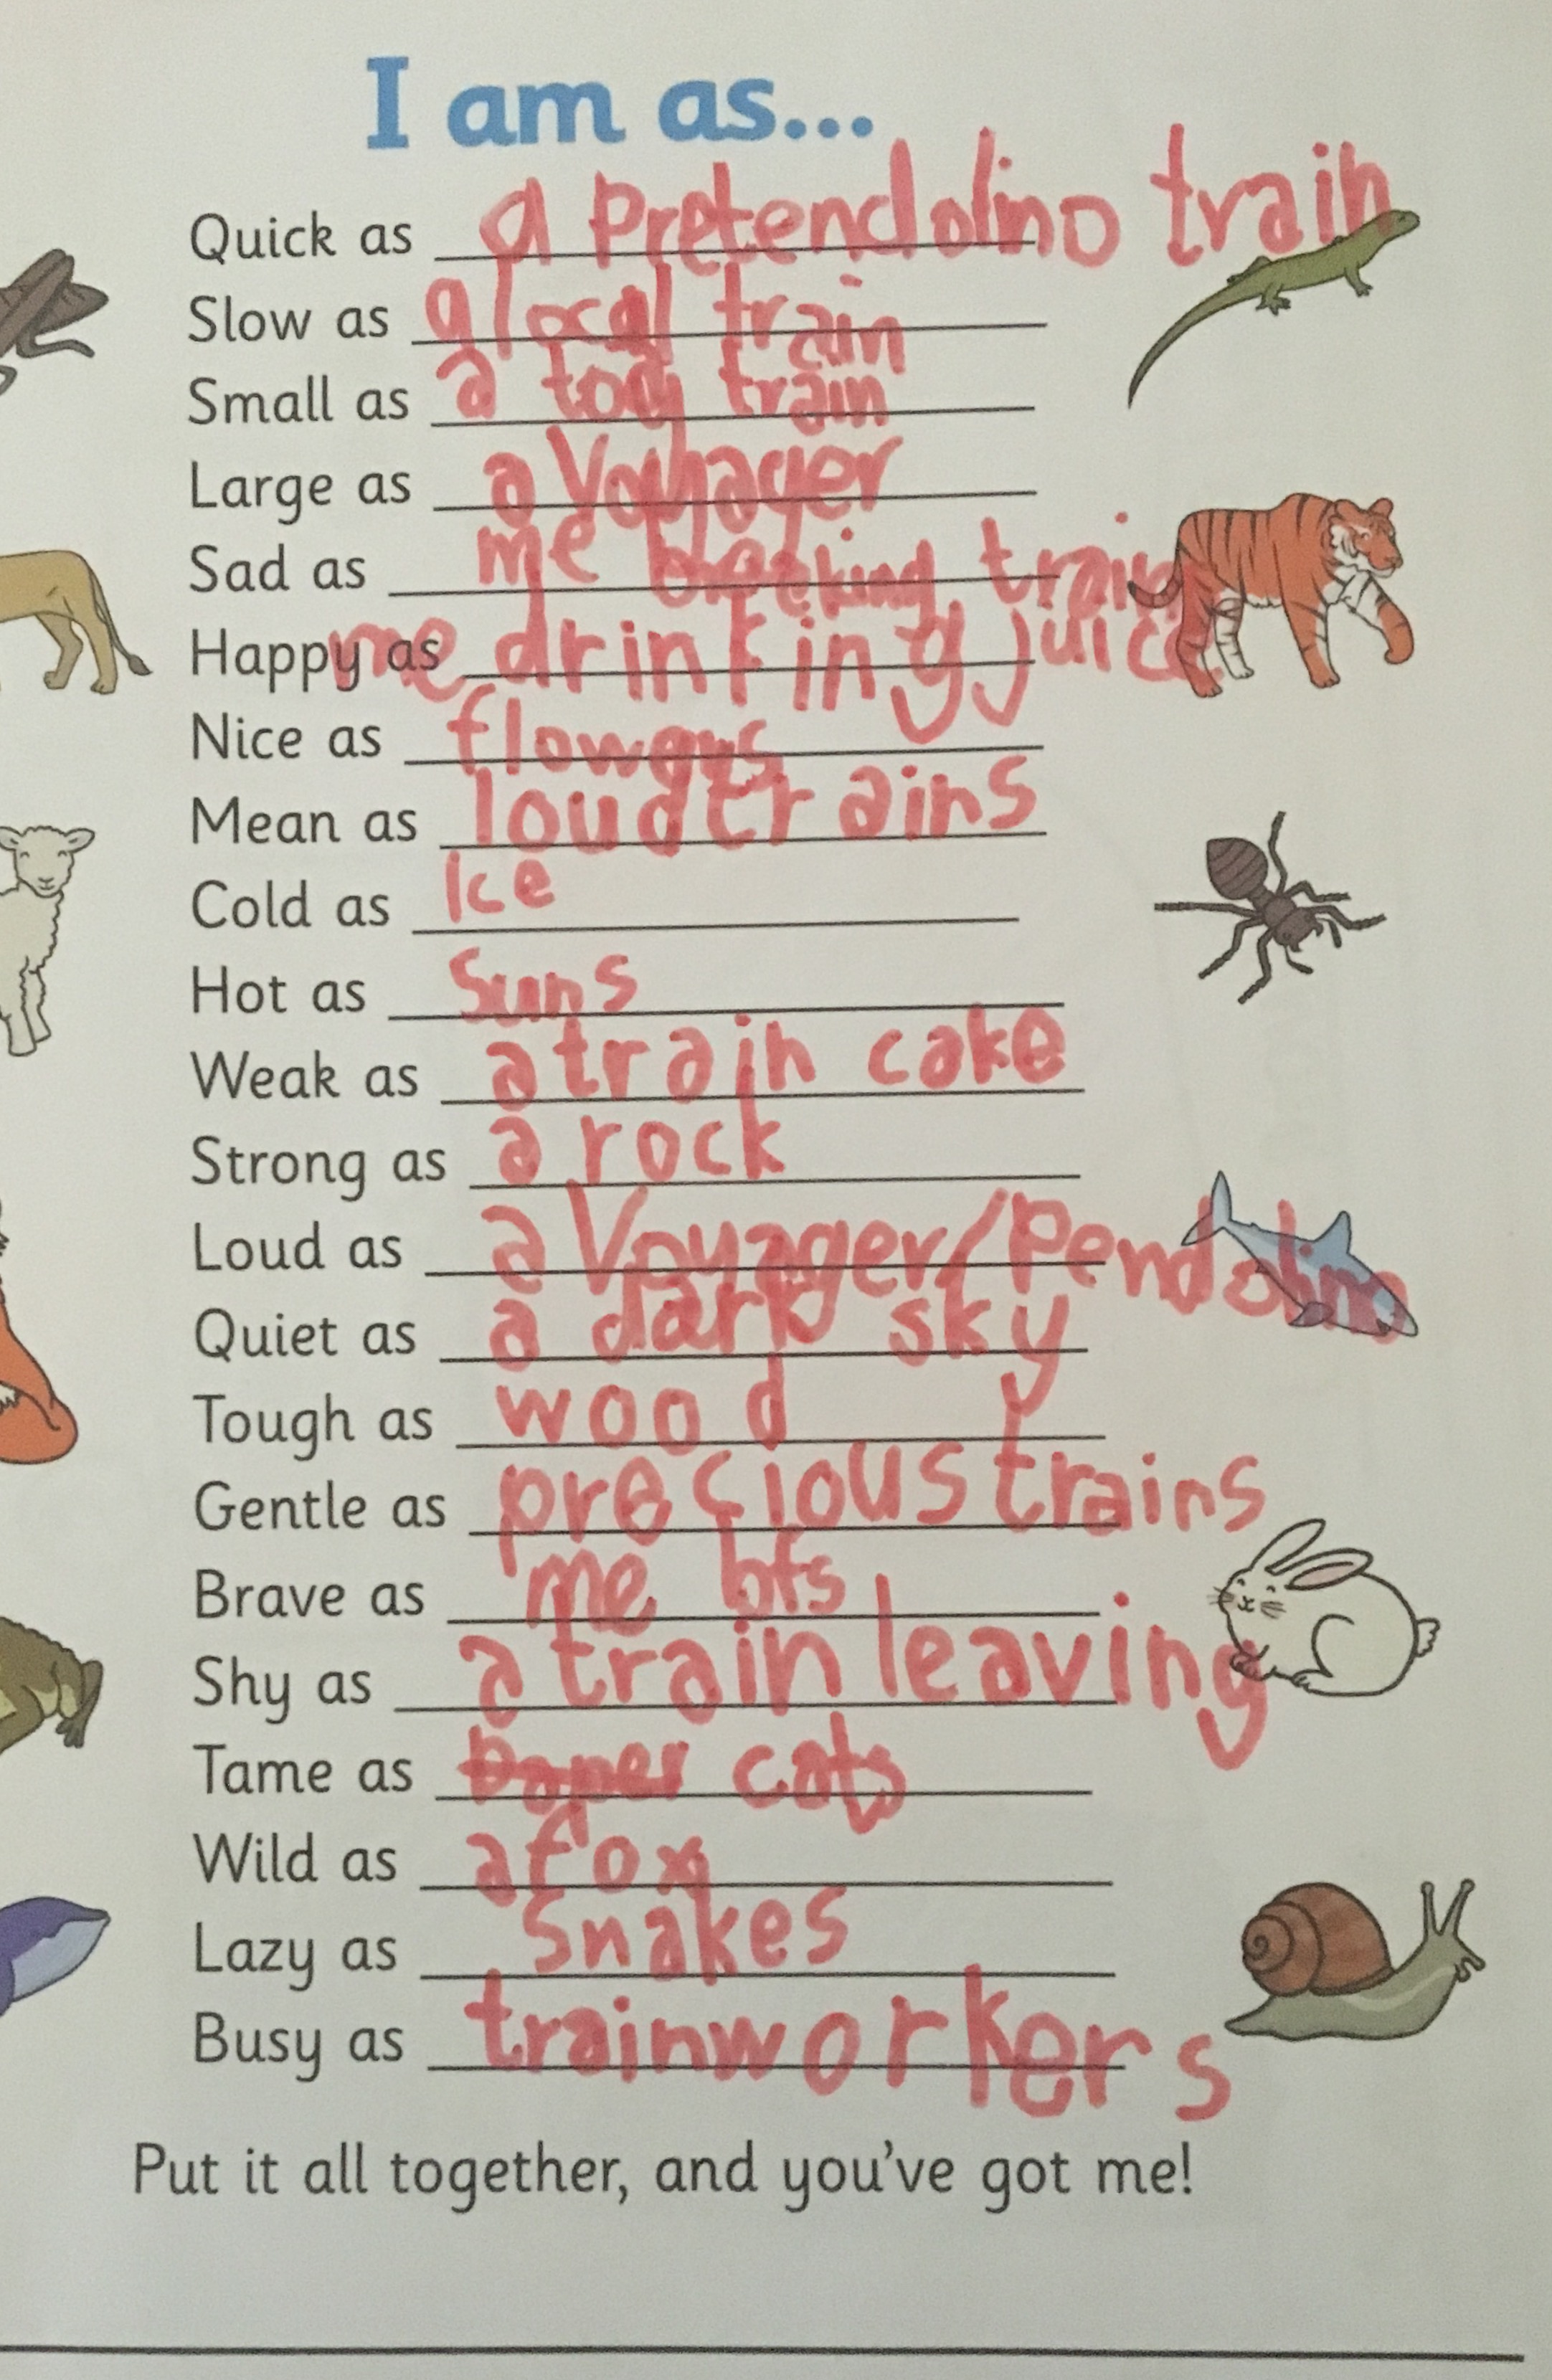 I am as...
Quick as a Pretendolino train
Slow as a local train
Small as a toy train
Large as a Voyager
Sad as me breaking train
Happy as me drinking juice
Nice as flowers
Mean as loud trains
Cold as Ice
Hot as Suns
Weak as a train cake
Strong as a rock
Loud as a Voyager/Pendolino
Quiet as a dark sky
Tough as wood
Gentle as precious trains
Brave as me bfs
Shy as a train leaving
Tame as cats
Wild as a fox
Lazy as Snakes
Busy as trainworkers
Put it all together, and you've got me!